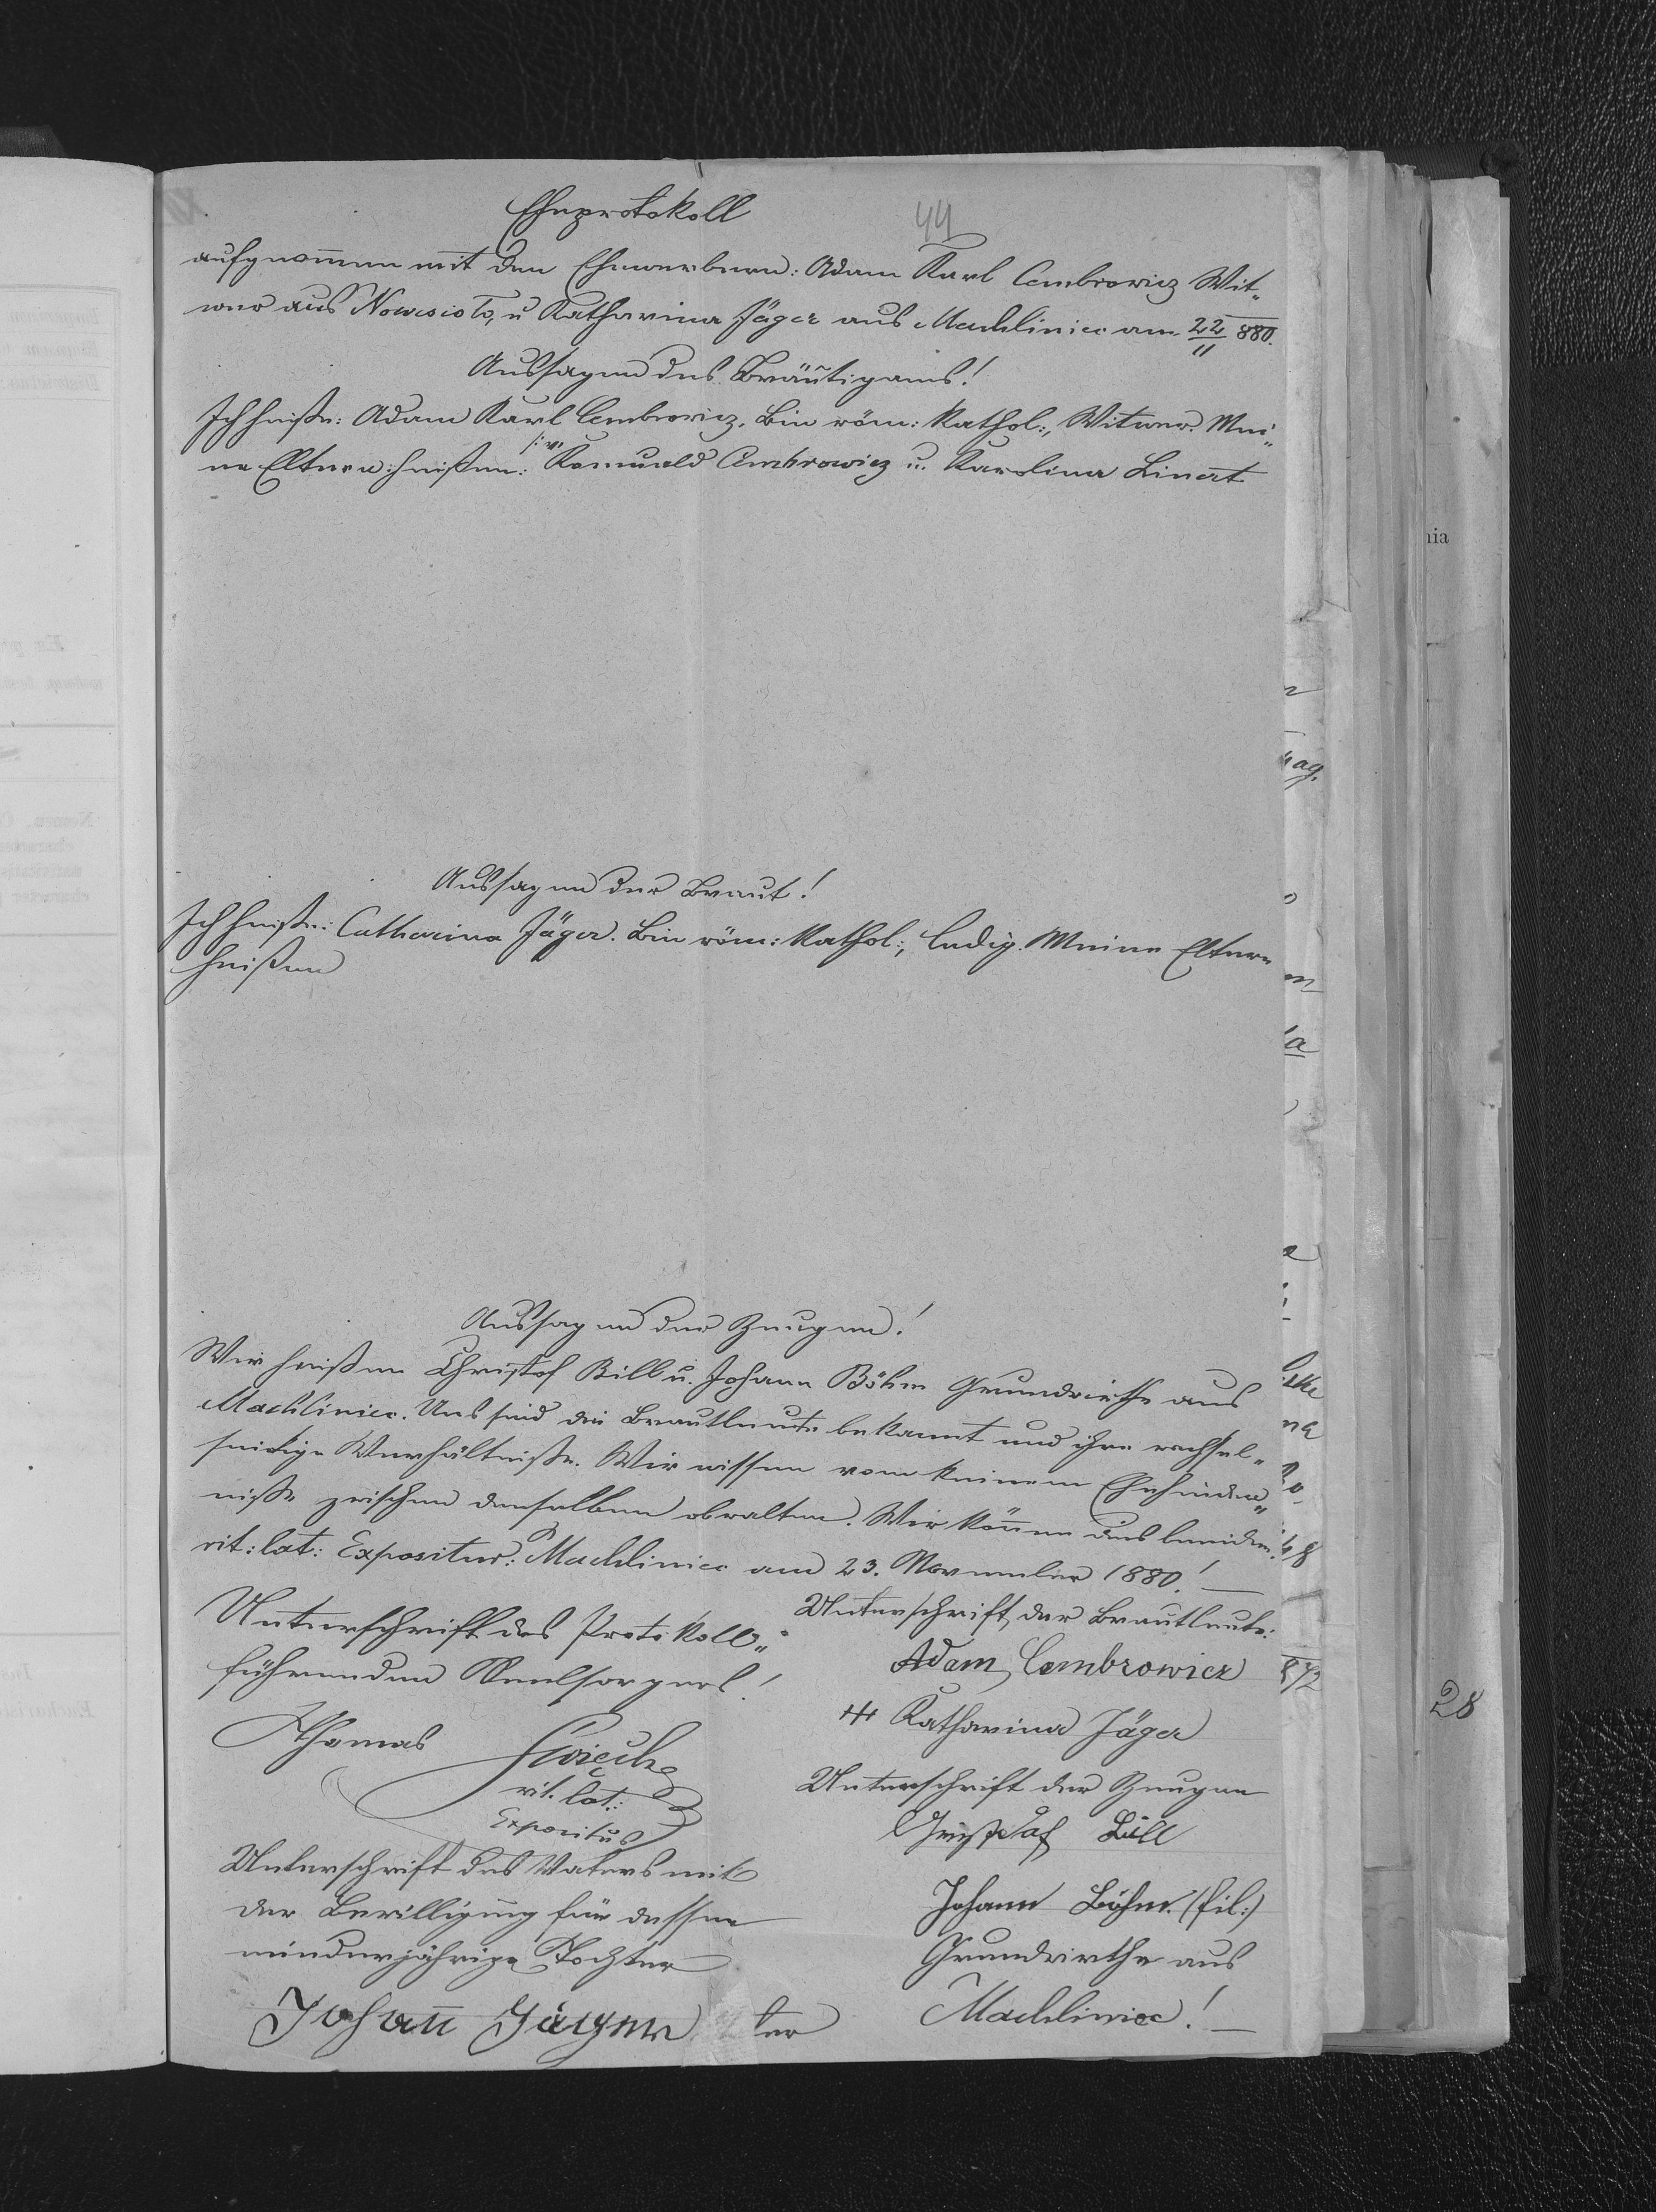 Eheprotokoll
44
aufgenom̄en mit den Ehewerbern: Adam Karl Cembrowicz Wit„
wer aus Nowesioło, u Katharina Jäger aus Machliniec am 22/11 880.
Aussagen des Bräutigams!
Ich heiße: Adam Karl Cembrowicz. Bin röm: Kathol:, Witwer. Mei„
ne Eltern: heißen: Romuald Cembrowicz u. Karolina Linat
Aussagen der Braut!
Ich heiße: Catharina Jäger. Bin röm: Kathol:, ledig. Meine Eltern
heißen
Aussagen der Zeugen!
Wir heißen Christof Bill u. Johann Böhm Grundwirthe aus
Machliniec. Uns sind die Brautleute bekannt und ihre wechsel„
seitige Verhältniße. Wir wissen vom keinem Ehehinder„
niße zwischen denselben obwalten. Wir kön̄en dies beeiden.
rit: lat: Expositur: Machliniec am 23. November 1880! —
Unterschrift des Protokoll„
führenden Seelsorgers!
Thomas
rit. lat.:
Expositus
Unterschrift des Vaters mit
der Bewilligung für dessen
minderjährige Tochter
Johan̄ Jäger ter
Unterschrift der Brautleute:
Adam Cembrowicz
+++ Katharina Jäger
Unterschrift der Zeugen
Christof Bill
Johann Böhm (fil:)
Grundwirthe aus
Machliniec! —
nia
ag.
28